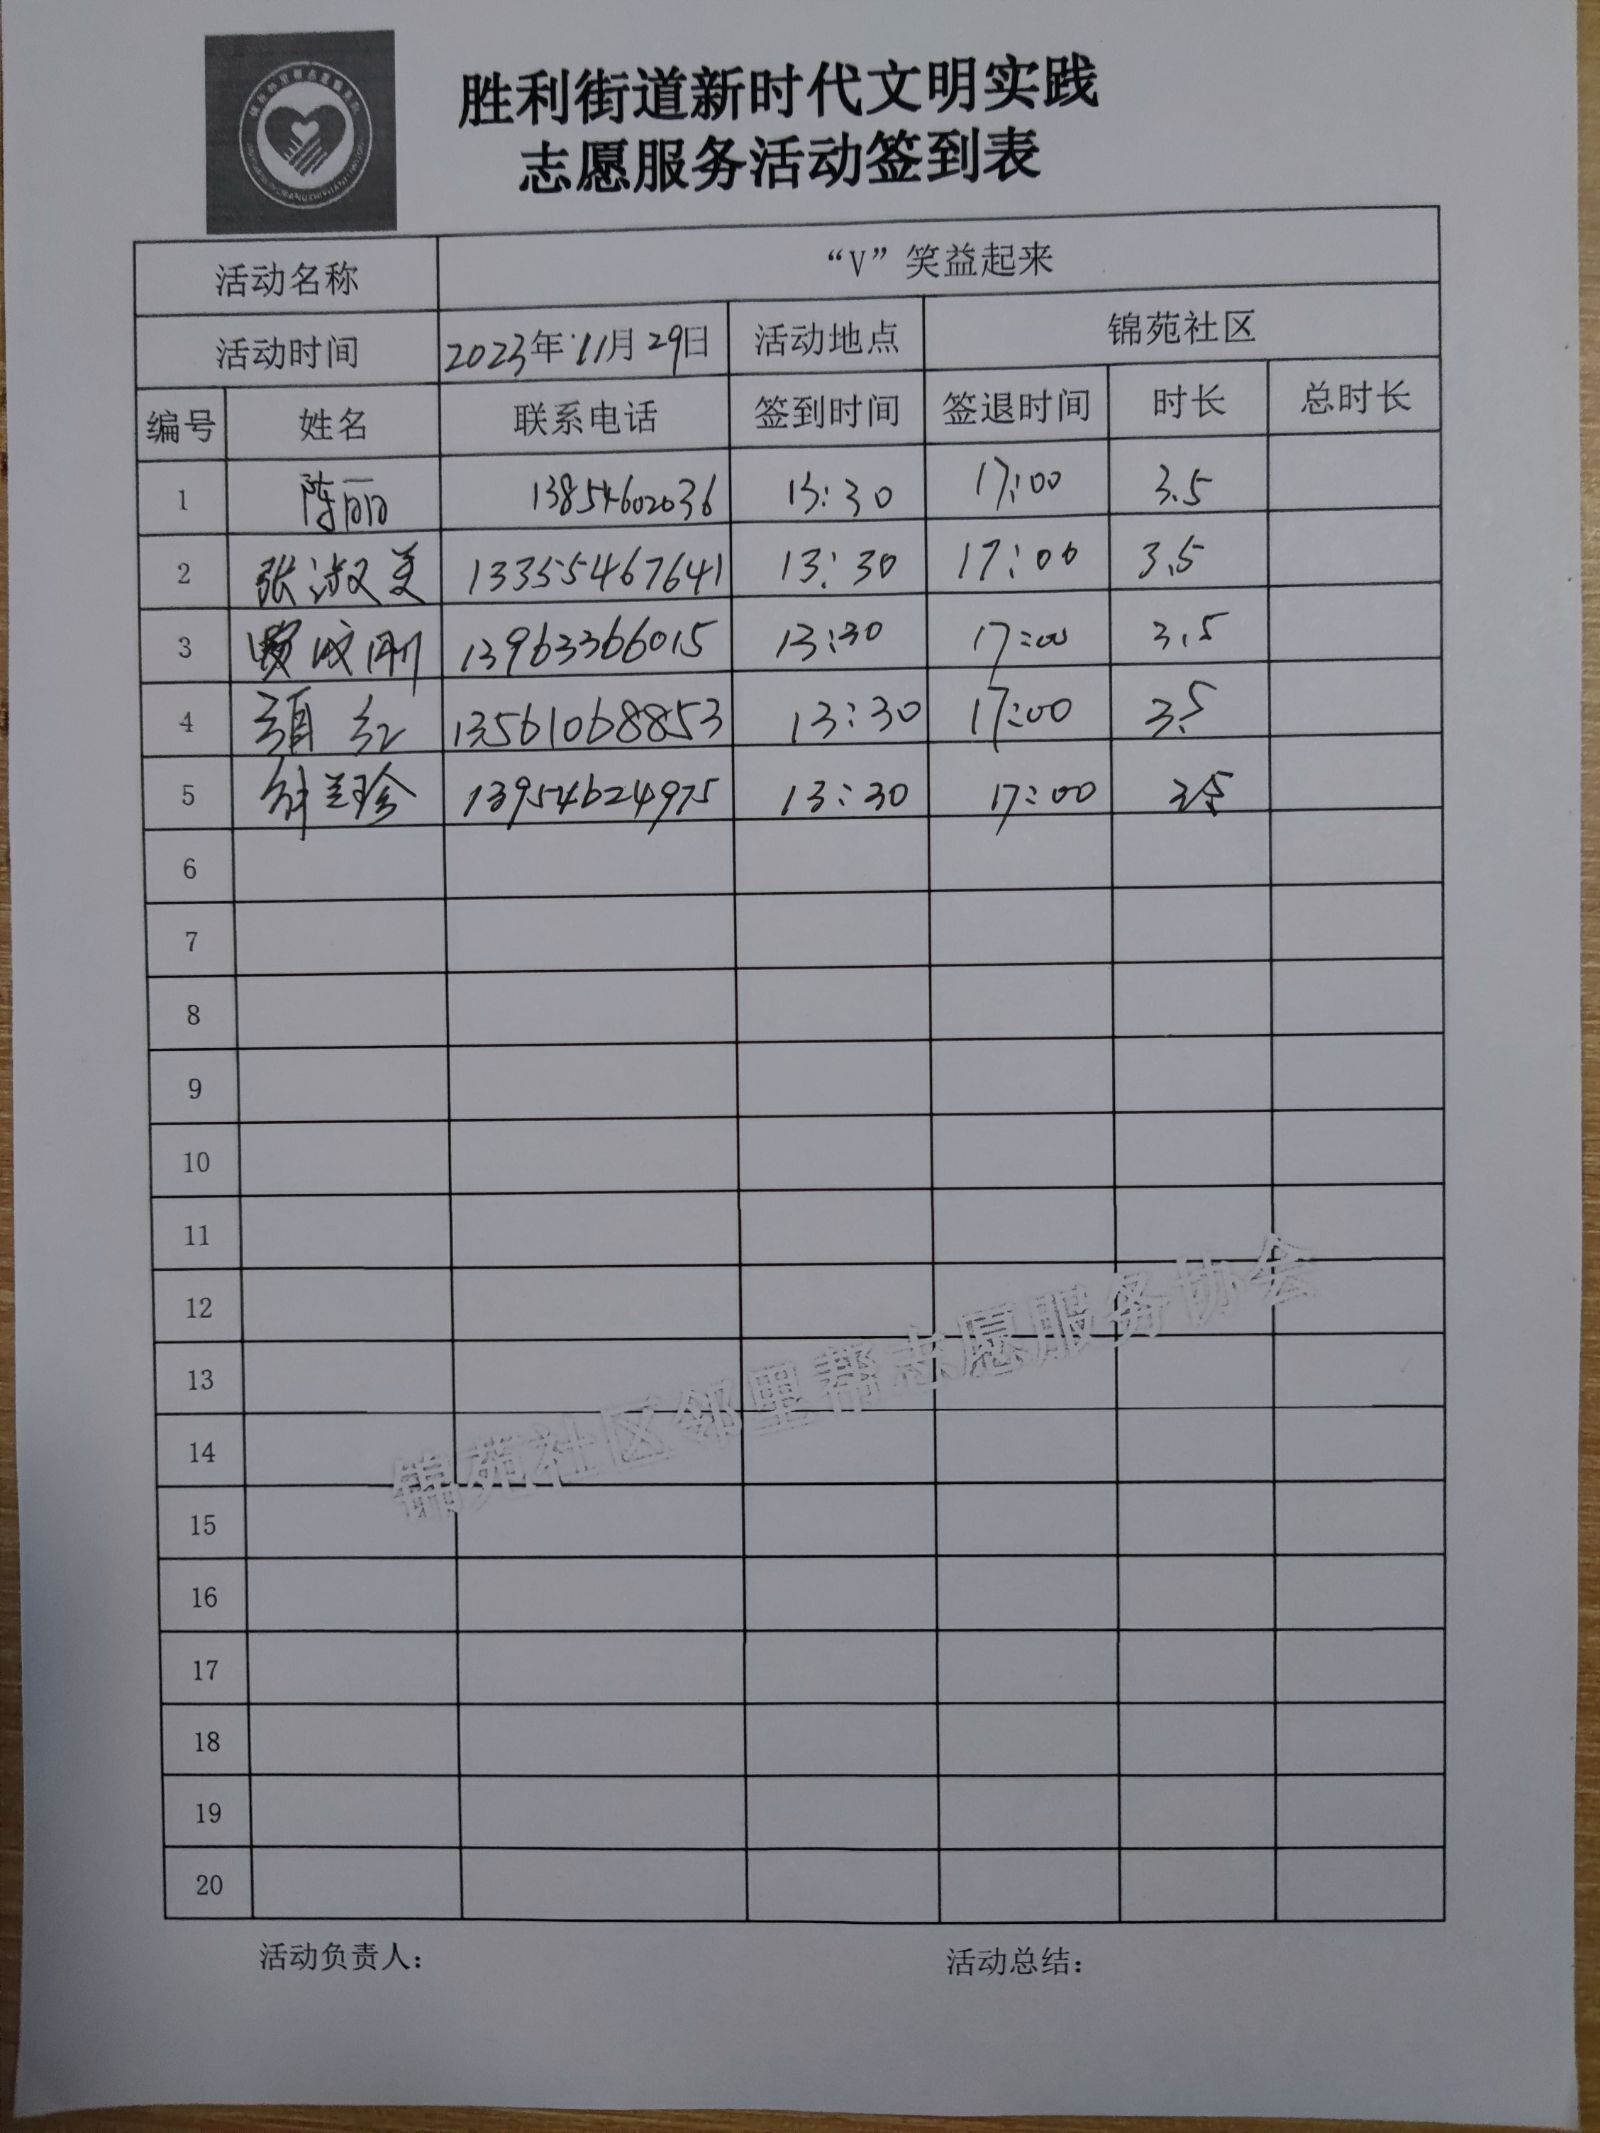 胜利街道新时代文明实践
志愿服务活动签到表
活动名称 “V”笑益起来
活动时间 2023年11月29日 活动地点 锦苑社区
编号 姓名 联系电话 签到时间 签退时间 时长 总时长
1 陈丽 13854602036 13:30 17:00 3.5
2 张淑美 13355467641 13:30 17:00 3.5
3 刚 13963366015 13:30 17:00 3.5
4 红 13561068853 13:30 17:00 3.5
5 兰珍 13954624975 13:30 17:00 3.5
6
7
8
9
10
11
12
13
14
15
16
17
18
19
20
锦苑社区邻里帮志愿服务协会
活动负责人： 活动总结：